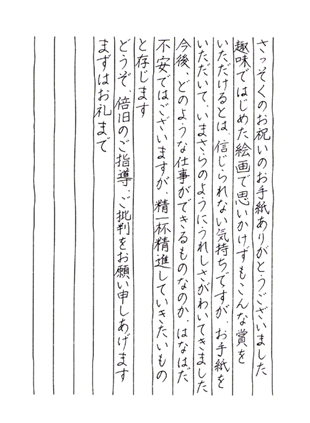 さっそくのお祝いのお手紙ありがとうございました
趣味ではじめた絵画で思いかけずもこんな賞を
いただけるとは、信じられない気持ちですが、お手紙を
いただいて、いまさらのようにうれしさがわいてきました
今後、どのような仕事ができるものなのか、はなはだ
不安ではございますが、精一杯精進していきたいもの
と存じます
どうぞ、倍旧のご指導、ご批判をお願い申しあげます
まずはお礼まで